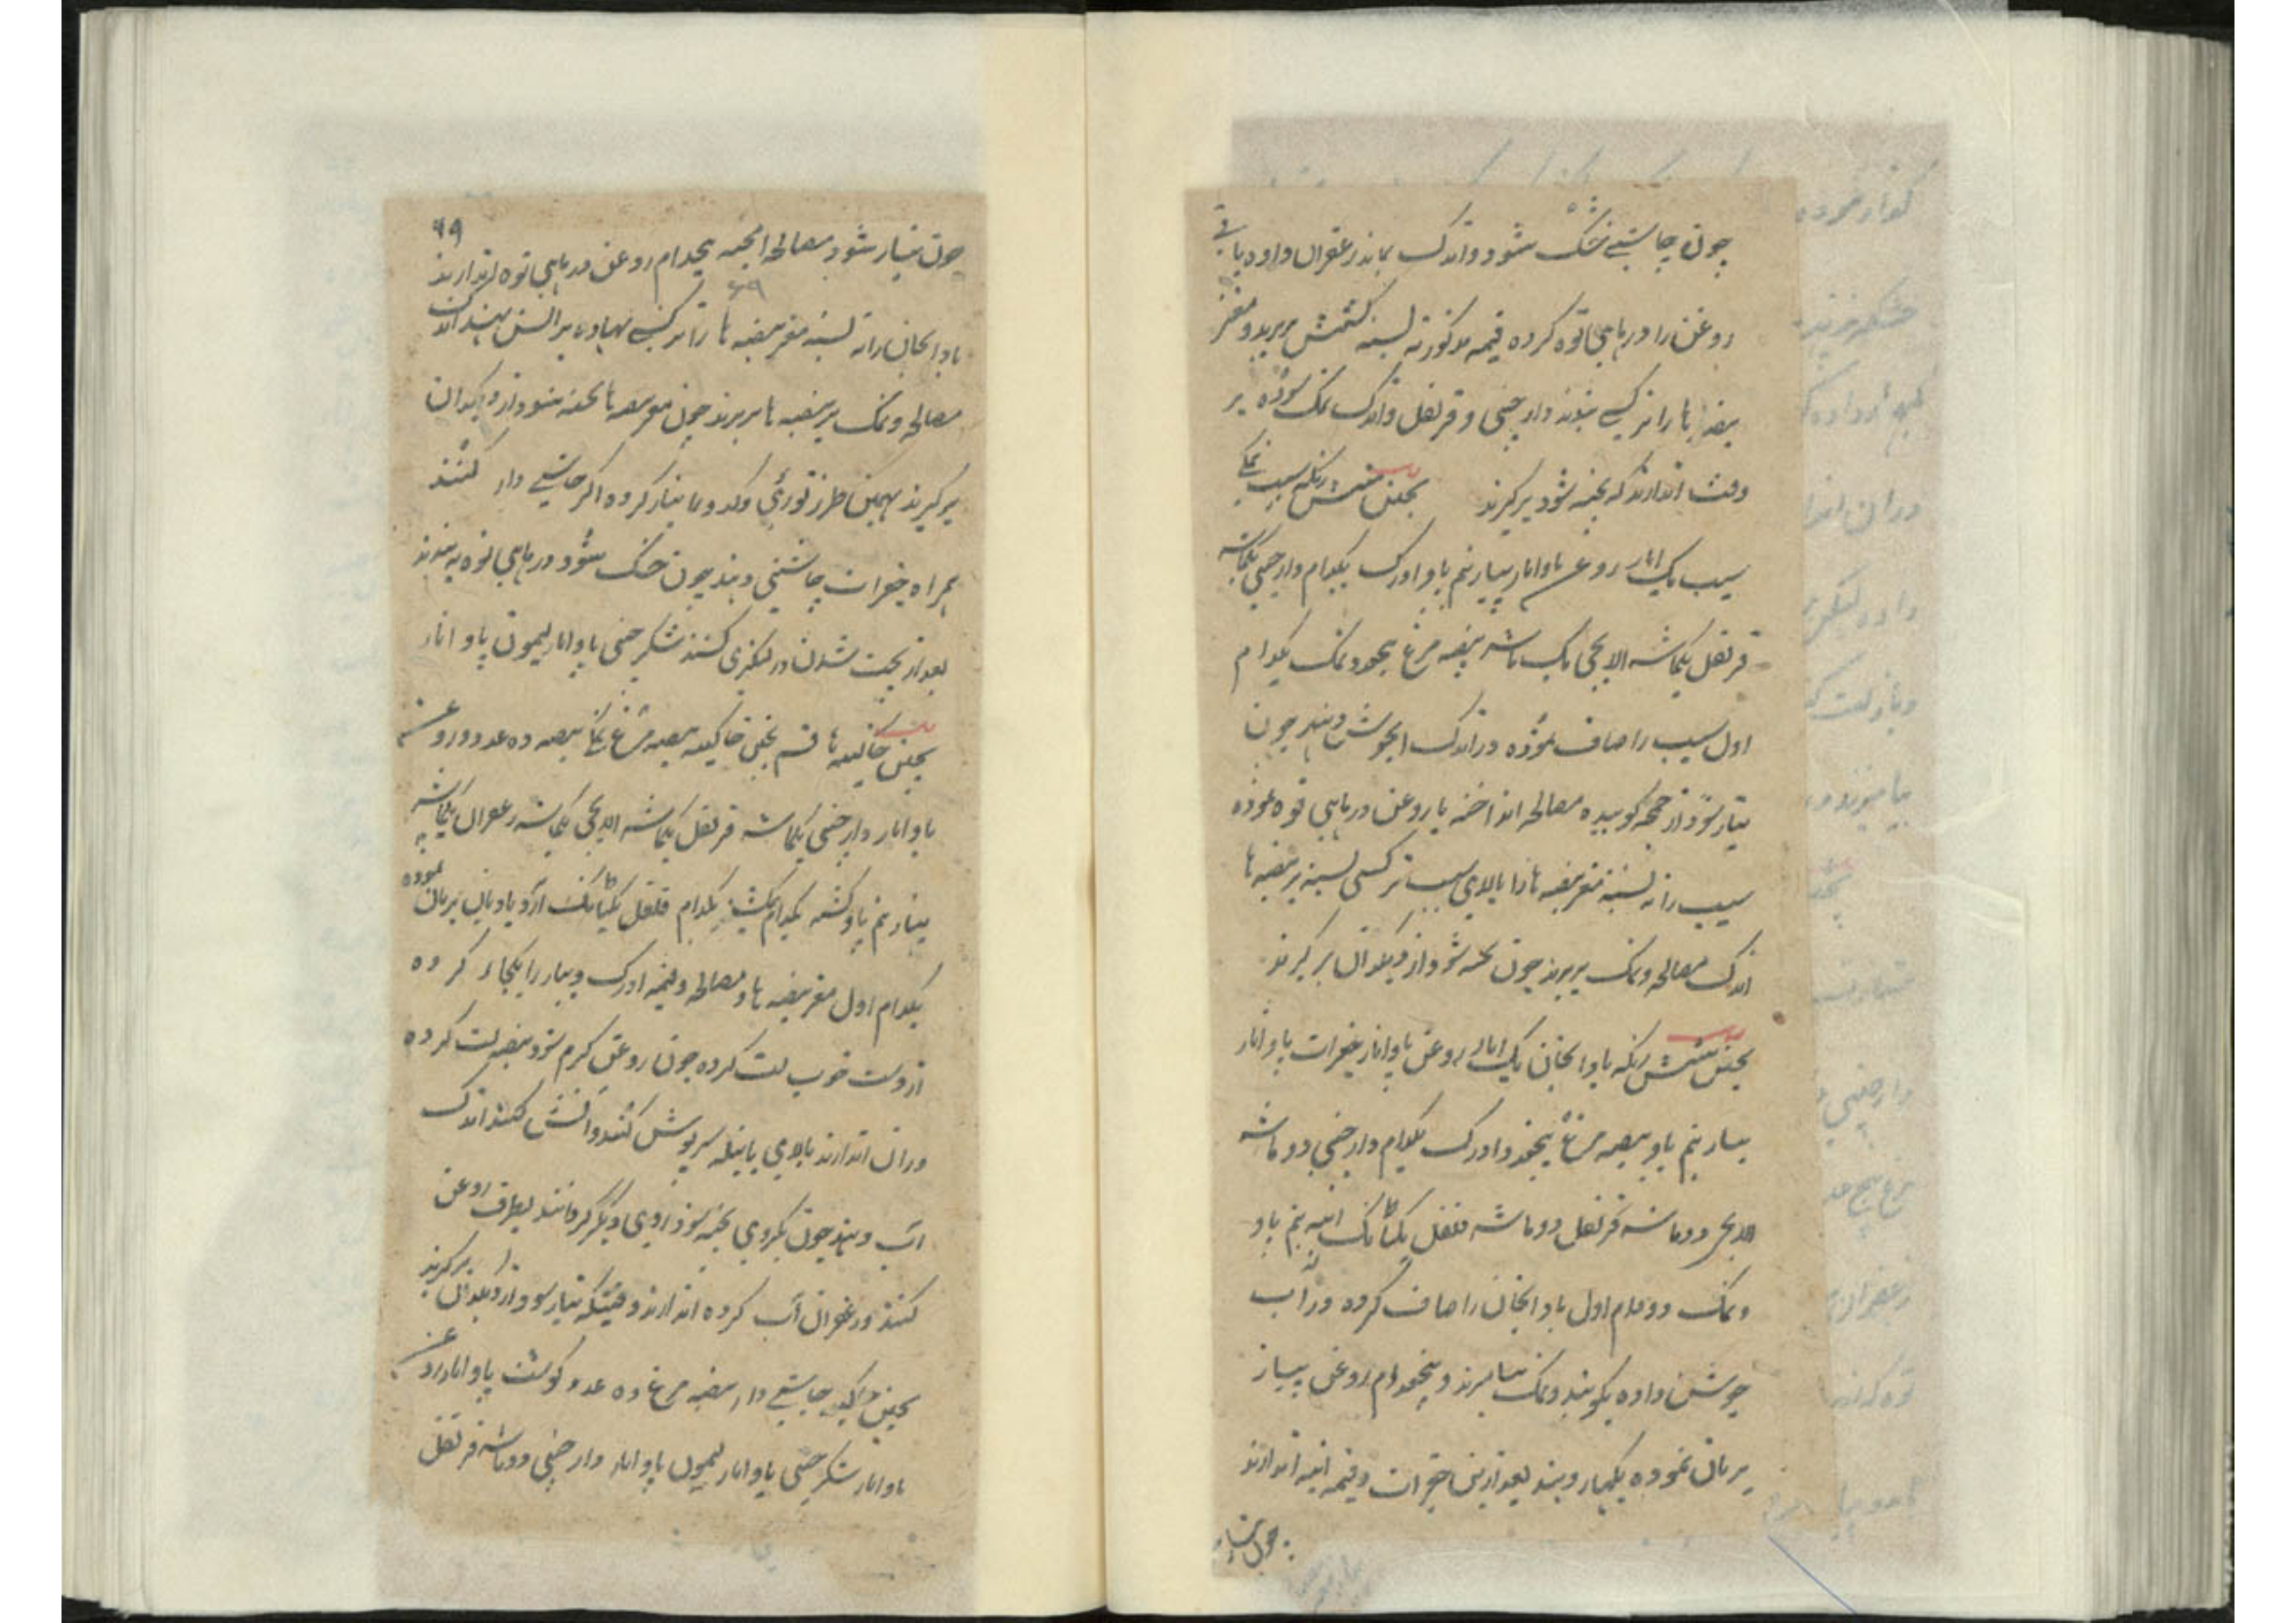 چون چاشنی خشک شود و اندک بماند زعفران داده باقی
روغن را در ماهی توه کرده قیمه مذکور ته بسته کشمش بریزد و مغز
بیضه ها را نرگسی بندند دارچینی و قرنفل و اندک نمک سوده بر
وقت اندازند که پخته شود برگیرند پختن شش رنگه سیب نمکی
سیب یک اثار روغن پاو اثار پیاز نیم پاو ادرک یکدام دارچینی یکماشه
قرنفل یکماشه الایچی یک ماشه بیضه مرغ پنجعدد نمک یکدام
اول سیب را صاف نموده در اندک آبجوش دهند چون
تیار شود از چمچه کوبیده مصالحه انداخته با روغن در ماهی توه نموده
سیب را ته بسته مغز بیضه ها را بالای سیب نرگسی بسته بر بیضه ها
اندک مصالحه و نمک بریزند چون پخته شود از دیگدان برگیرند
پختن شش رنگه بادنجان یک اثار روغن پاو اثار جغرات پاو اثار
پیاز نیم پاو بیضه مرغ پنجعدد ادرک یکدام دارچینی دو ماشه
الایچی دو ماشه قرنفل دو ماشه فلفل یکتانک انبه نیم پاو
و نمک دو دام اول بادنجان را صاف کرده در آب
جوش داده بکوبند و نمک بیامیزند و پنجدام روغن پیاز
بریان نموده بگهار دهند بعد ازین جغرات و قیمه انبه اندازند
چون تیار
۶۹
چون تیار شود مصالحه آمیخته پنجدام روغن در ماهی توه اندازند
۶۹
بادنجان را ته بسته مغز بیضه ها را نرگسی نهاده بر آتش نهند اندک
مصالحه و نمک بر بیضه ها بریزند چون مغز بیضه ها پخته شود از دیگدان
برگیرند بهمین طرز تورئی و کدو را تیار کرده اگر چاشنی دار کنند
همراه جغرات چاشنی دهند چون خشک شود در ماهی توه به بندند
بعد از پخت شدن در لنگری کشند شکر چینی پاو اثار لیمون پاو اثار
پختن خاگینه ها قسم پختن خاگینه بیضه مرغ نمکی بیضه ده عدد و روغن
پاو اثار دارچینی یکماشه قرنفل یکماشه الایچی یکماشه زعفران یکماشه
پیاز نیم پاو کشنیز یکدام فلفل یکتانک آرد بادیان بریان نموده
یکدام اول مغز بیضه ها و مصالحه و قیمه ادرک و پیاز را یکجا کرده
از دست خوب لت کرده چون روغن گرم شود بیضه لت کرده
در آن اندازند بالای پاتیله سرپوش کنند و آتش کنند اندک
آب دهند چون یکروی پخته شود روی دیگر گردانند بطرف روغن
کنند و زعفران آب کرده اندازند وقتیکه تیار شود از دیگدان برگیرند
پختن خاگینه چاشنی دار بیضه مرغ ده عدد گوشت پاو اثار روغن
پاو اثار شکر چینی پاو اثار لیمون پاو اثار دارچینی دو ماشه قرنفل